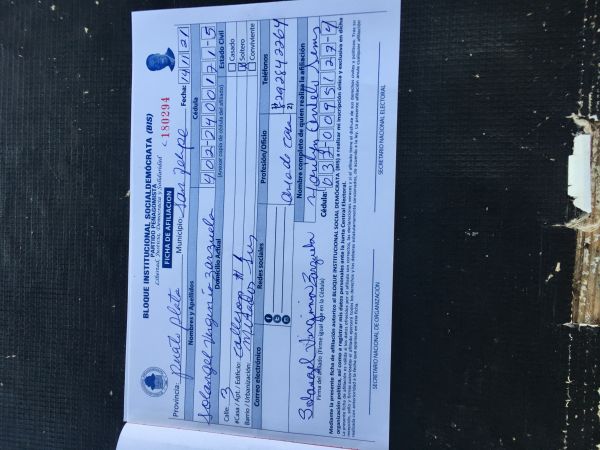 BLOQUE INSTITUCIONAL SOCIALDEMÓCRATA (BIS)
PARTIDO PEÑAGOMISTA
Libertad, Justicia, Democracia y Solidaridad
FICHA DE AFILIACIÓN
180294
Provincia: puerto plata Municipio: san felipe Fecha: 14/11/21
Nombres y Apellidos Cédula
Solangel Virginio Barzuela 402-2400171-5
(Anexar copia de cédula del afiliado)
Domicilio Actual Estado Civil
Calle: 3 Casado
#Casa / Apt. / Edificio: Callejon # 1 Soltero
Barrio / Urbanización: Conviviente
Correo electrónico Redes sociales Profesión/Oficio Teléfonos
ama de casa 8292842264
2)
Nombre completo de quien realiza la afiliación
Solangel Virginio Barzuela Marilyn
Firma del afiliado (Firme igual que en la Cédula) Cédula: 037-0095127-4
Mediante la presente ficha de afiliación autorizo al BLOQUE INSTITUCIONAL SOCIALDEMÓCRATA (BIS) a realizar mi inscripción única y exclusiva en dicha
organización política, así como a registrar mis datos personales ante la Junta Central Electoral.
SECRETARIO NACIONAL DE ORGANIZACIÓN SECRETARIO NACIONAL ELECTORAL